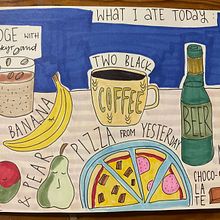 WHAT I ATE TODAY:
DGE WITH
TWO BLACK
COFFEE
BANANA
& PEAR
PIZZA FROM YESTERDAY
BEER
CHOCO-
LA
TE